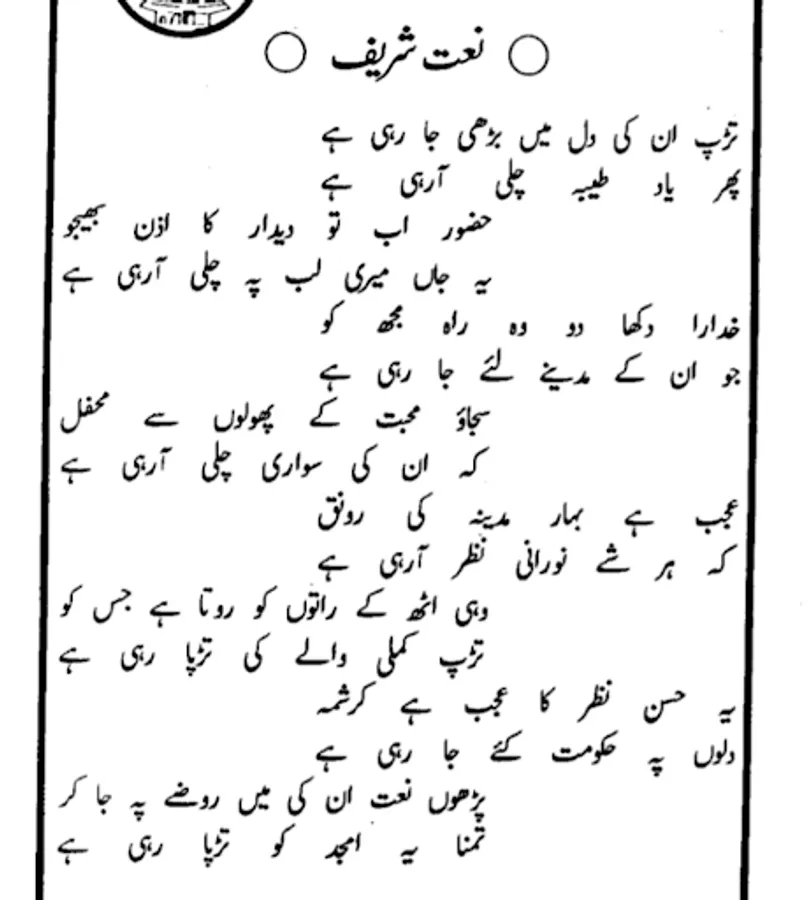 نعت شریف
تڑپ ان کی دل میں بڑھی جا رہی ہے
پھر یاد طیبہ چلی آرہی ہے
حضور اب تو دیدار کا اذن بھیجو
یہ جاں میری لب پہ چلی آرہی ہے
خدارا دکھا دو وہ راہ مجھ کو
جو ان کے مدینے لئے جا رہی ہے
سجاؤ محبت کے پھولوں سے محفل
کہ ان کی سواری چلی آرہی ہے
عجب ہے بہار مدینہ کی رونق
کہ ہر شے نورانی نظر آرہی ہے
وہی اٹھ کے راتوں کو روتا ہے جس کو
تڑپ کملی والے کی تڑپا رہی ہے
یہ حسن نظر کا عجب ہے کرشمہ
دلوں پہ حکومت کئے جا رہی ہے
پڑھوں نعت ان کی میں روضے پہ جا کر
تمنا یہ امجد کو تڑپا رہی ہے